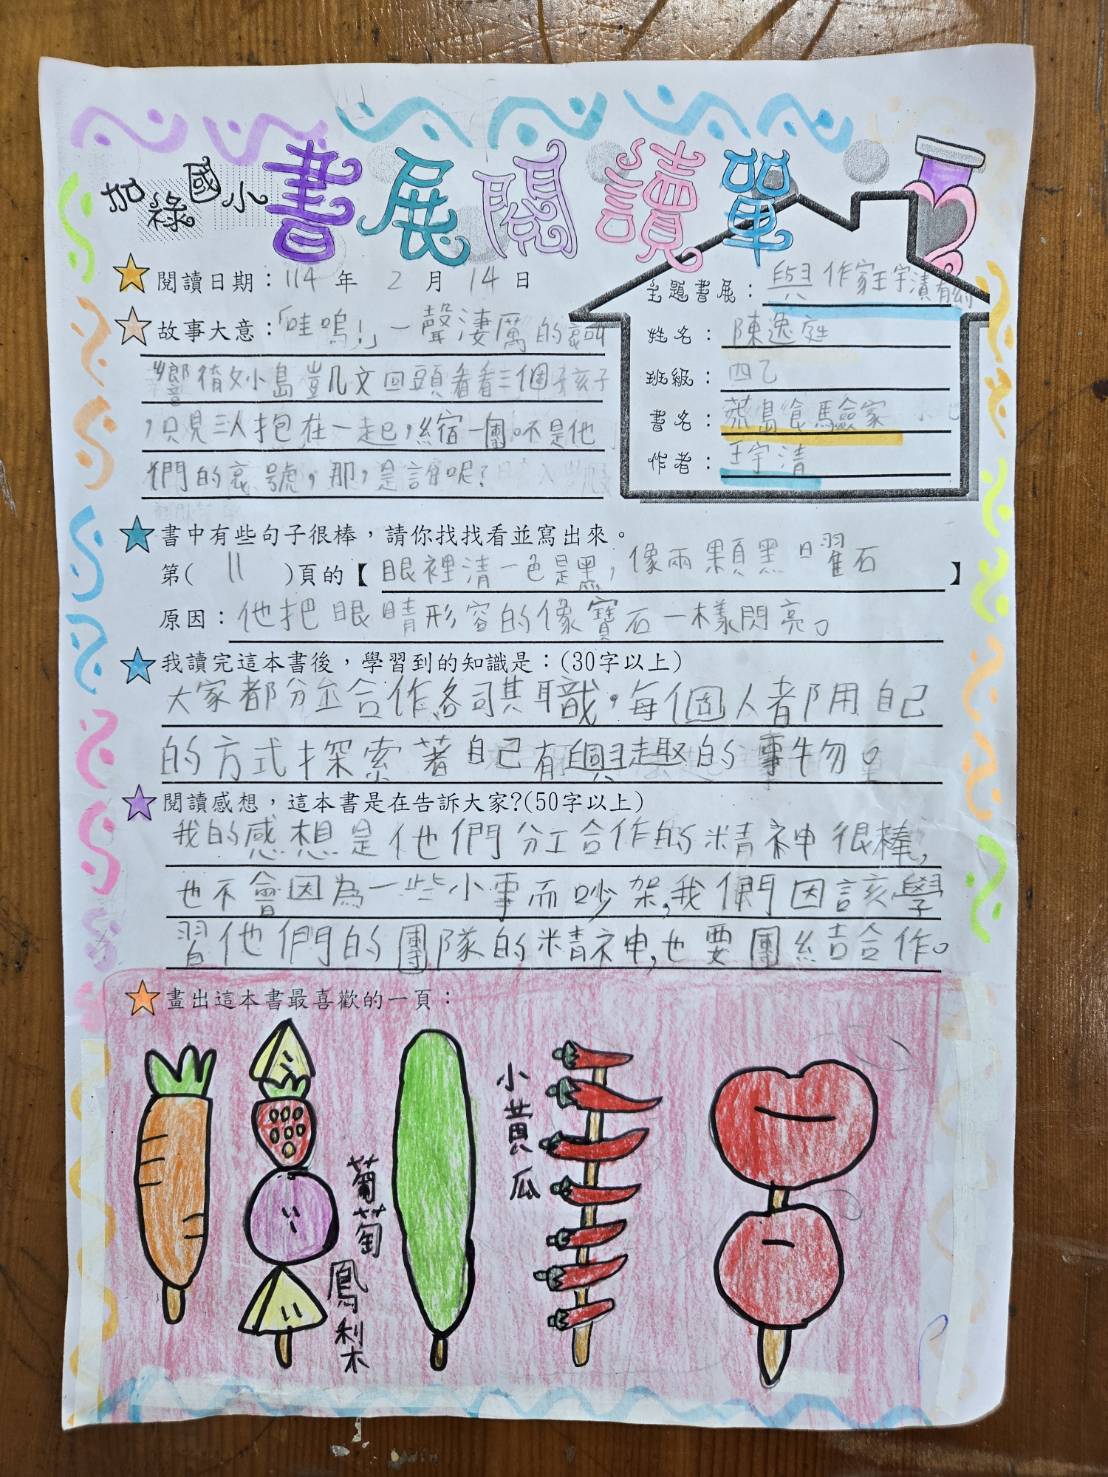 加祿國小書展閱讀單
閱讀日期：114 年 2 月 14 日
主題書展：與作家王宇清有約
故事大意：「哇嗚！」一聲淒厲的哀叫
姓名：陳逸庭
響徹妙小島豈几文回頭看看三個孩子
班級：四乙
，只見三人抱在一起，縮一團。不是他
書名：菜島食驗家
們的哀號，那，是誰呢？
作者：王宇清
書中有些句子很棒，請你找找看並寫出來。
第( 11 )頁的【眼裡清一色是黑，像兩顆黑曜石】
原因：他把眼睛形容的像寶石一樣閃亮。
我讀完這本書後，學習到的知識是：(30字以上)
大家都分工合作各司其職，每個人都用自己
的方式探索著自己有興趣的事物。
閱讀感想，這本書是在告訴大家?(50字以上)
我的感想是他們分工合作的精神很棒，
也不會因為一些小事而吵架，我們因該學
習他們的團隊的精神，也要團結合作。
畫出這本書最喜歡的一頁：
小黃瓜
葡萄
鳳梨